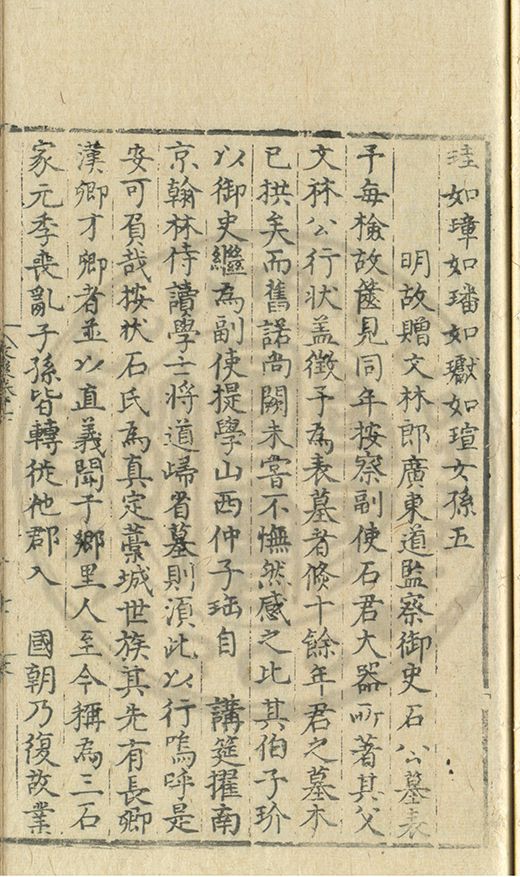 珪如璋如璠如瓛如瑄女孫五
明故贈文林郎廣東道監察御史石公墓表
予每檢故篋見同年按察副使石君大器所著其父
文林公行状盖徵予為表墓者倏十餘年君之墓木
已拱矣而舊諾尚闕未嘗不憮然感之比其伯子玠
以御史繼為副使提學山西仲子珤自 講筵擢南
京翰林侍讀學士將道歸省墓則湏此以行嗚呼是
安可負哉按状石氏為真定藁城世族其先有長卿
漢卿才卿者並以直義聞于鄉里人至今稱為三石
家元季喪亂子孫皆轉徙他郡入 國朝乃復故業